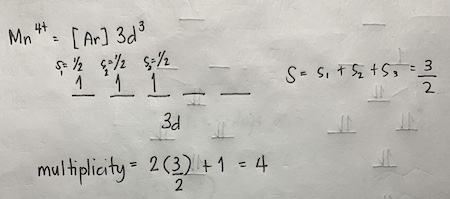 Mn⁴⁺ = [Ar] 3d³
S₁=1/2 S₂=1/2 S₃=1/2
1 1 1 _ _
S = S₁ + S₂ + S₃ = 3/2
3d
multiplicity = 2(3/2) + 1 = 4